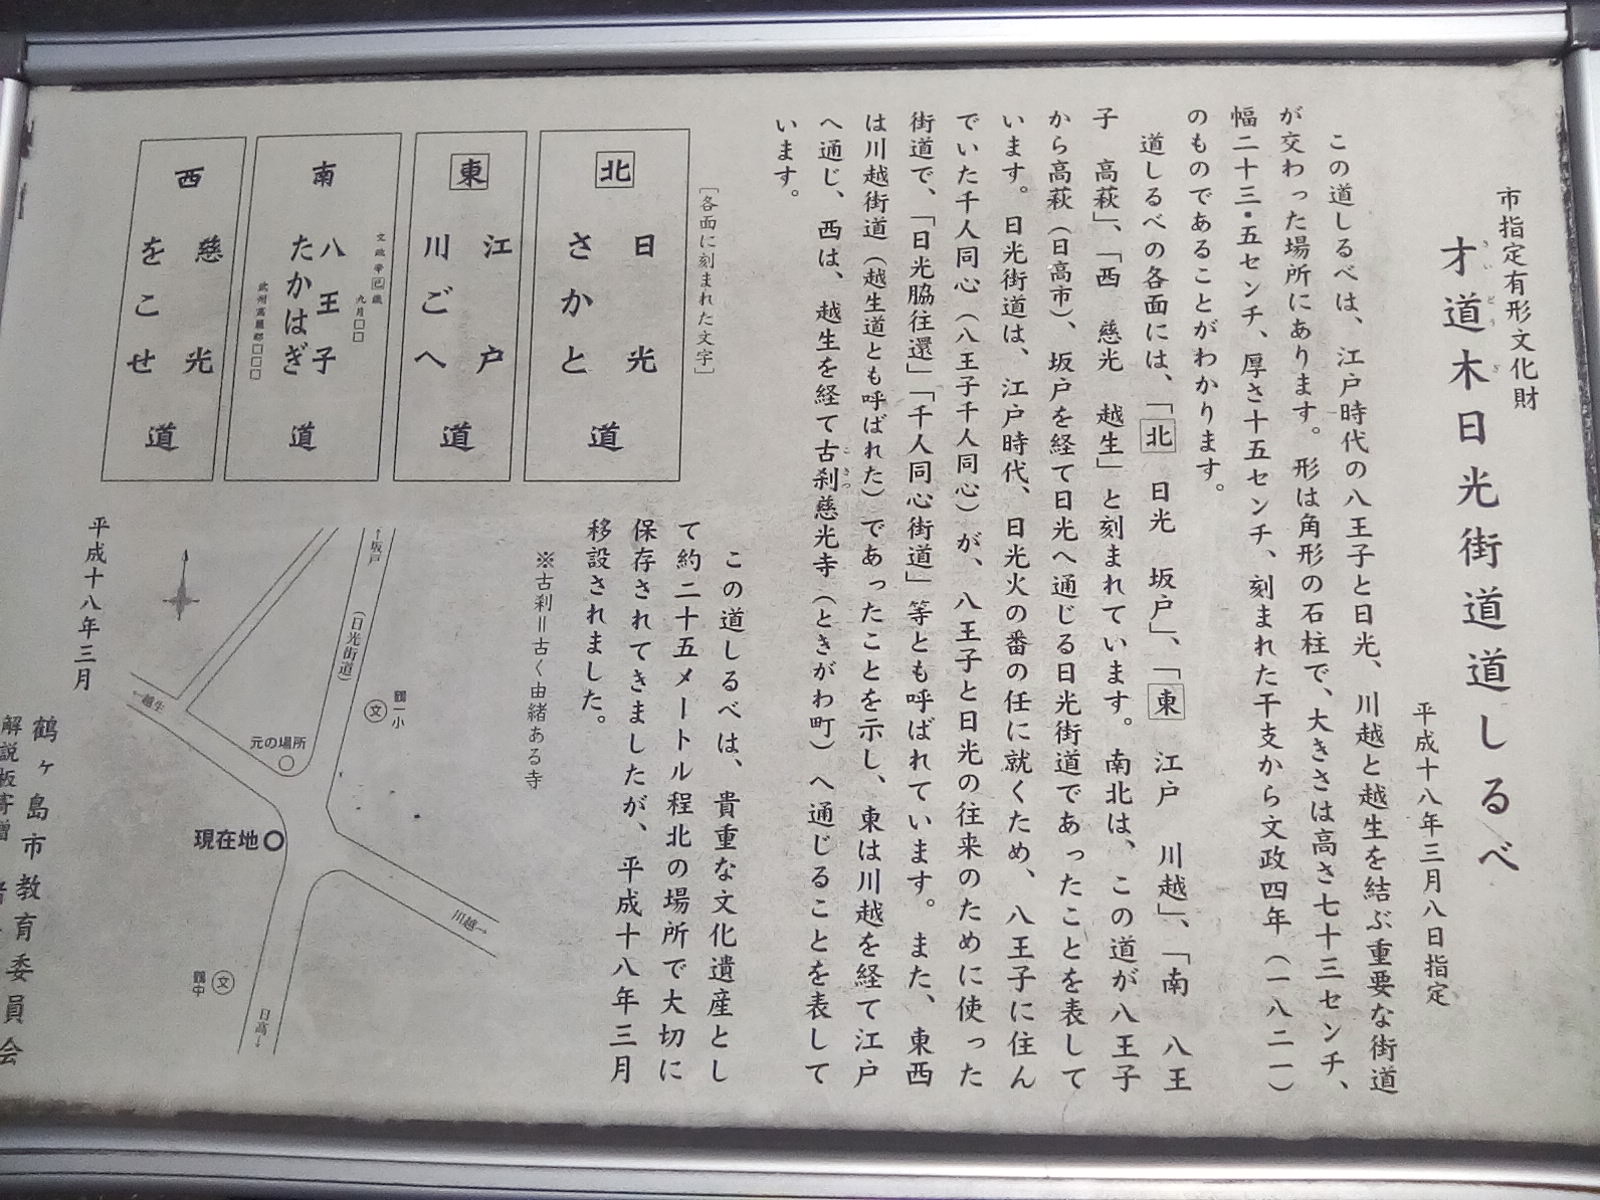 市指定有形文化財
才道木日光街道道しるべ
さいどうぎ
平成十八年三月八日指定
この道しるべは、江戸時代の八王子と日光、川越と越生を結ぶ重要な街道
が交わった場所にあります。形は角形の石柱で、大きさは高さ七十三センチ、
幅二十三・五センチ、厚さ十五センチ、刻まれた干支から文政四年（一八二一）
のものであることがわかります。
道しるべの各面には、「北 日光 坂戸」、「東 江戸 川越」、「南 八王
子 高萩」、「西 慈光 越生」と刻まれています。南北は、この道が八王子
から高萩（日高市）、坂戸を経て日光へ通じる日光街道であったことを表して
います。日光街道は、江戸時代、日光火の番の任に就くため、八王子に住ん
でいた千人同心（八王子千人同心）が、八王子と日光の往来のために使った
街道で、「日光脇往還」「千人同心街道」等とも呼ばれています。また、東西
は川越街道（越生道とも呼ばれた）であったことを示し、東は川越を経て江戸
へ通じ、西は、越生を経て古刹慈光寺（ときがわ町）へ通じることを表して
こさつ
います。
［各面に刻まれた文字］
北
日光
さかと
道
東
江戸
川ごへ
道
南
文政辛巳歳
九月□□
八王子
たかはぎ
道
武州高麗郡□□□
西
慈光
をこせ
道
この道しるべは、貴重な文化遺産とし
て約二十五メートル程北の場所で大切に
保存されてきましたが、平成十八年三月
移設されました。
※古刹＝古く由緒ある寺
←坂戸
（日光街道）
鶴一小
文
←越生
元の場所
現在地
川越→
鶴中
文
日高→
平成十八年三月
鶴ヶ島市教育委員会
解説板寄贈